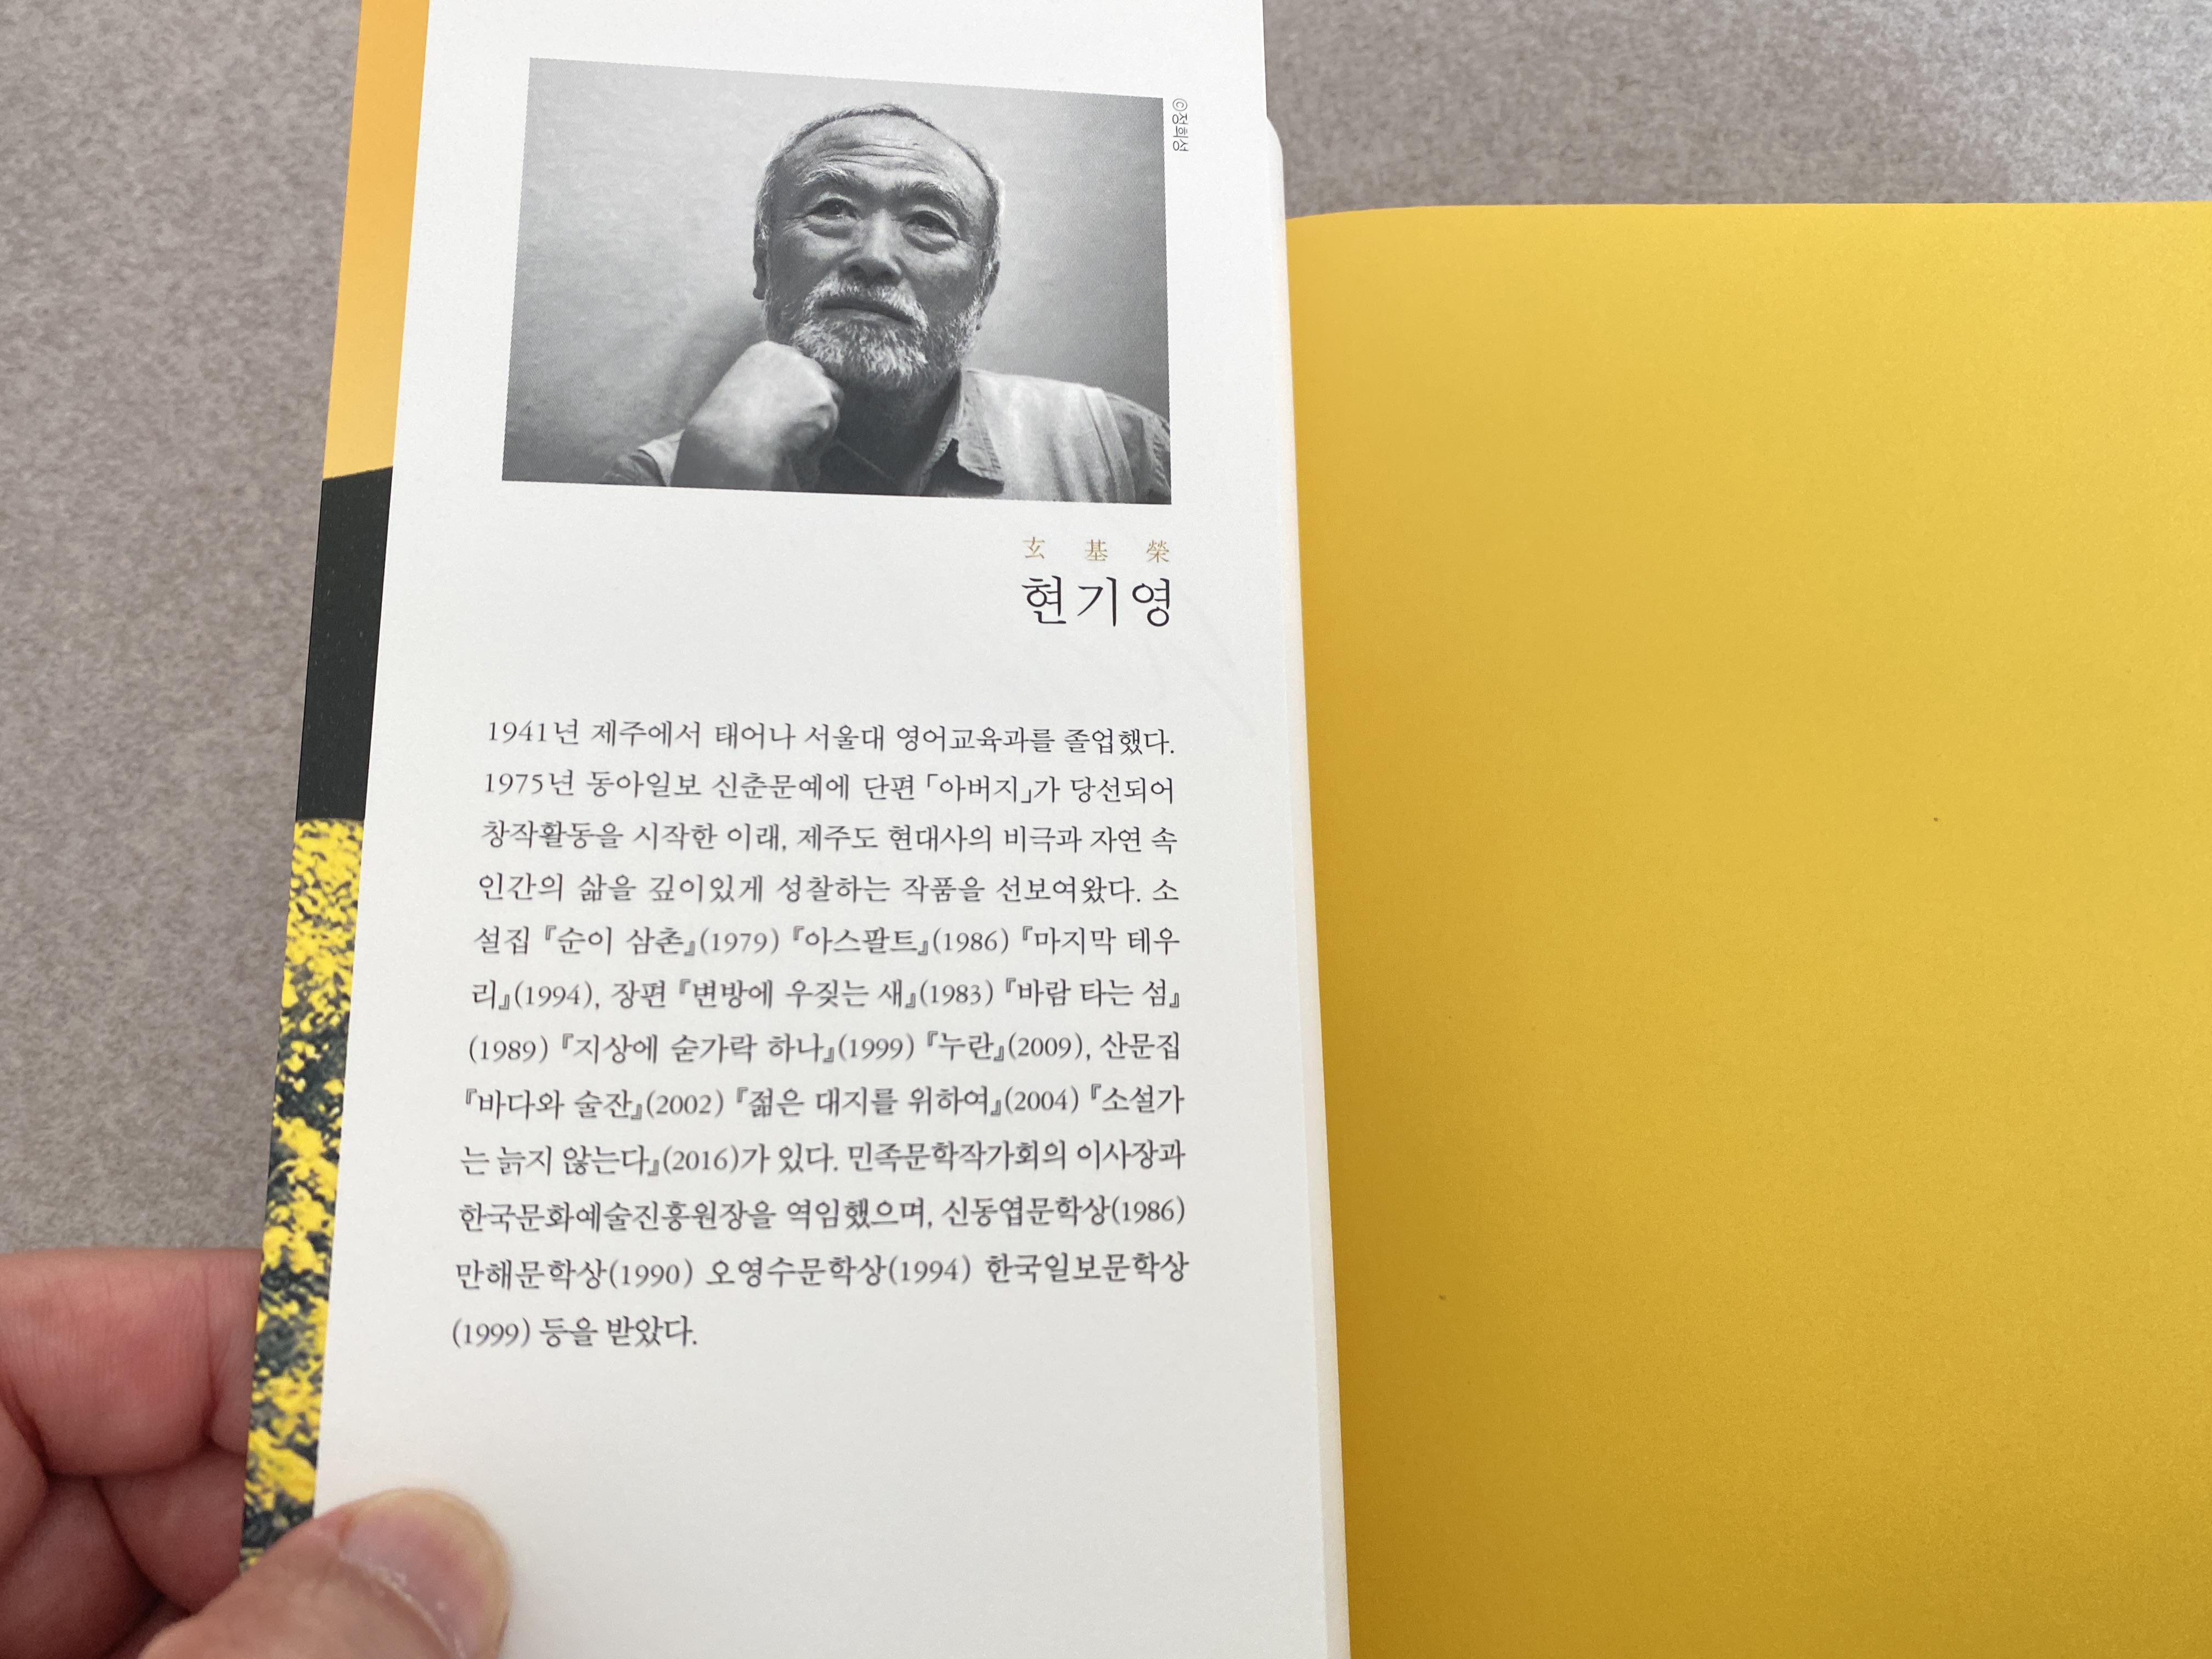 ©정희성
玄 基 榮
현기영
1941년 제주에서 태어나 서울대 영어교육과를 졸업했다.
1975년 동아일보 신춘문예에 단편 「아버지」가 당선되어
창작활동을 시작한 이래, 제주도 현대사의 비극과 자연 속
인간의 삶을 깊이있게 성찰하는 작품을 선보여왔다. 소
설집 『순이 삼촌』(1979) 『아스팔트』(1986) 『마지막 테우
리』(1994), 장편 『변방에 우짖는 새』(1983) 『바람 타는 섬』
(1989) 『지상에 숟가락 하나』(1999) 『누란』(2009), 산문집
『바다와 술잔』(2002) 『젊은 대지를 위하여』(2004) 『소설가
는 늙지 않는다』(2016)가 있다. 민족문학작가회의 이사장과
한국문화예술진흥원장을 역임했으며, 신동엽문학상(1986)
만해문학상(1990) 오영수문학상(1994) 한국일보문학상
(1999) 등을 받았다.